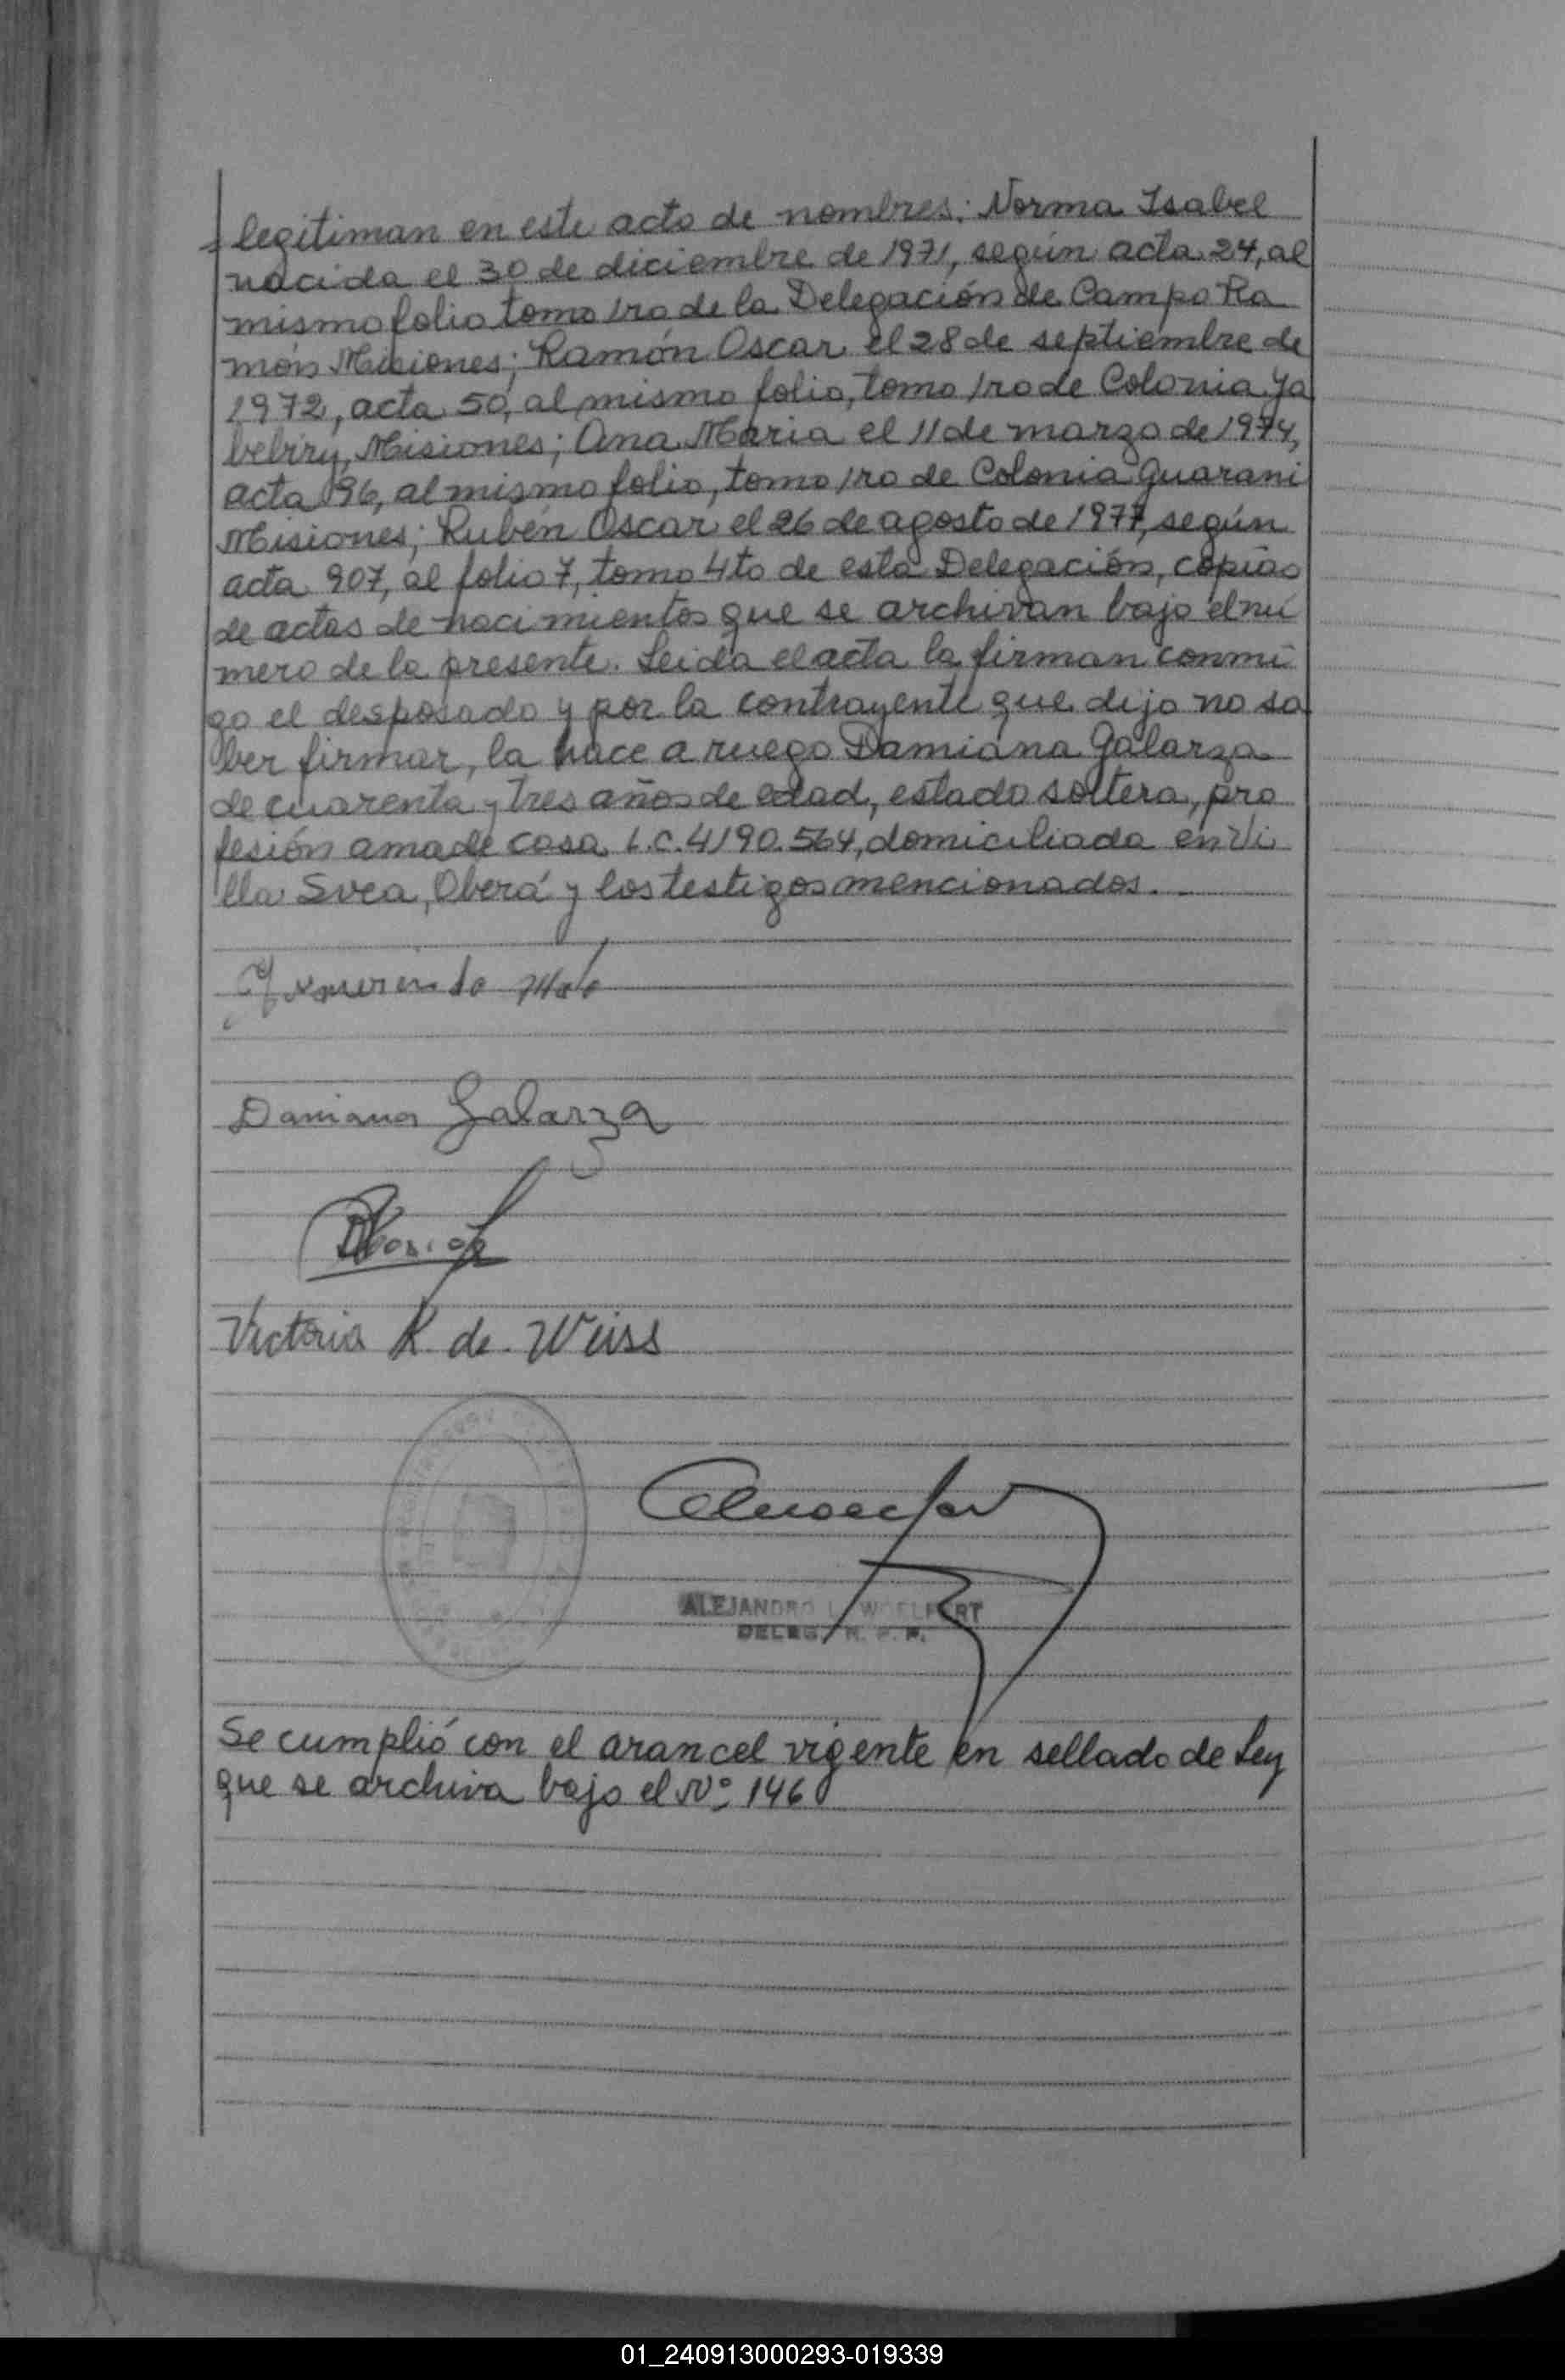 legitiman en este acto de nombres: Norma Isabel
nacida el 30 de diciembre de 1971, según acta 24, al
mismo folio tomo 1ro de la Delegación de Campo Ra
món Misiones; Ramón Oscar el 28 de septiembre de
1972, acta 50, al mismo folio, tomo 1ro de Colonia Ya
bebiry, Misiones; Ana Maria el 11 de marzo de 1974,
acta 96, al mismo folio, tomo 1ro de Colonia Guarani
Misiones; Rubén Oscar el 26 de agosto de 1977, según
acta 907, al folio 7, tomo 4to de esta Delegación, copias
de actas de nacimientos que se archivan bajo el nú
mero de la presente. Leida el acta la firman conmi
go el desposado y por la contrayente que dijo no sa
ber firmar, la hace a ruego Damiana Galarza
de cuarenta y tres años de edad, estado soltera, pro
fesión ama de casa L.C. 4190.564, domiciliada en Vi
lla Svea, Oberá y los testigos mencionados.
Damiana Galarza
Victoria K. de Weiss
ALEJANDRO L. WOELFERT
DELEG. R. P. P.
Se cumplió con el arancel vigente en sellado de Ley
que se archiva bajo el Nº 146
01_240913000293-019339